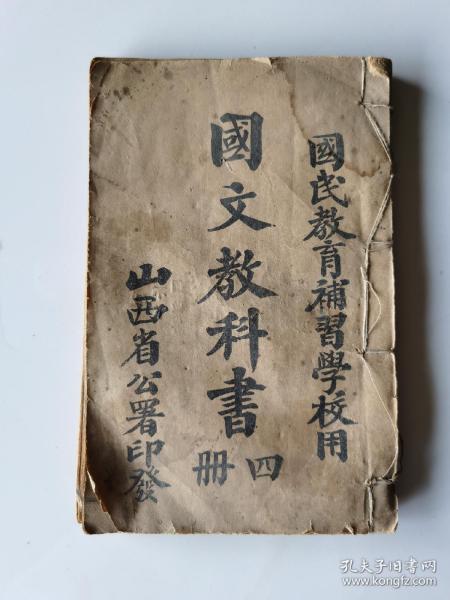 國民教育補習學校用
國文教科書
四册
山西省公署印發
孔夫子旧书网
www.kongfz.com